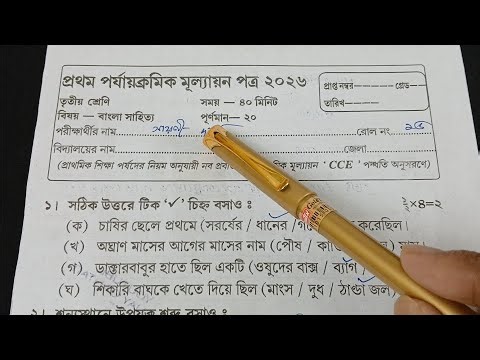 প্রথম পর্যায়ক্রমিক মূল্যায়ন পত্র ২০২৬
প্রাপ্ত নম্বর গ্রেড
তারিখ
তৃতীয় শ্রেণি সময় — ৪০ মিনিট
বিষয় — বাংলা সাহিত্য পূর্ণমান — ২০
পরীক্ষার্থীর নাম রোল নং
বিদ্যালয়ের নাম জেলা
(প্রাথমিক শিক্ষা পর্ষদের নিয়ম অনুযায়ী নব মূল্যায়ন ‘CCE’ পদ্ধতি অনুসরণে)
১। সঠিক উত্তরে টিক ‘✓’ চিহ্ন বসাও : ½×৪=২
(ক) চাষির ছেলে প্রথমে (সরষের / ধানের / করেছিল।
(খ) অঘ্রাণ মাসের আগের মাসের নাম (পৌষ /
(গ) ডাক্তারবাবুর হাতে ছিল একটি (ওষুদের বাক্স / ব্যাগ
(ঘ) শিকারি বাঘকে খেতে দিয়ে ছিল (মাংস / দুধ / ঠাণ্ডা জল)
২। শূন্যস্থানে উপযুক্ত শব্দ বসাও :